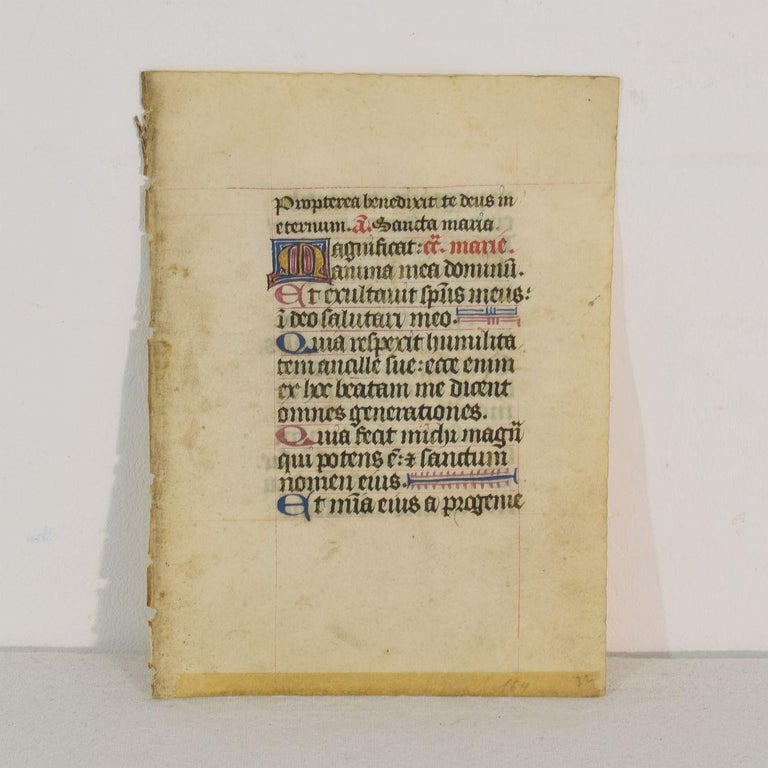 Propterea benedixit te deus in
eternum. A̅. Sancta maria.
Magnificat: c̅c̅. marie.
anima mea dominū.
Et exultauit sp̅us meus:
ī deo salutari meo.
Quia respexit humilita
tem ancille sue: ecce enim
ex hoc beatam me dicent
omnes generationes.
Quia fecit michi magn̄
qui potens ē: ⁊ sanctum
nomen eius.
Et m̅ia eius a progenie
164 22